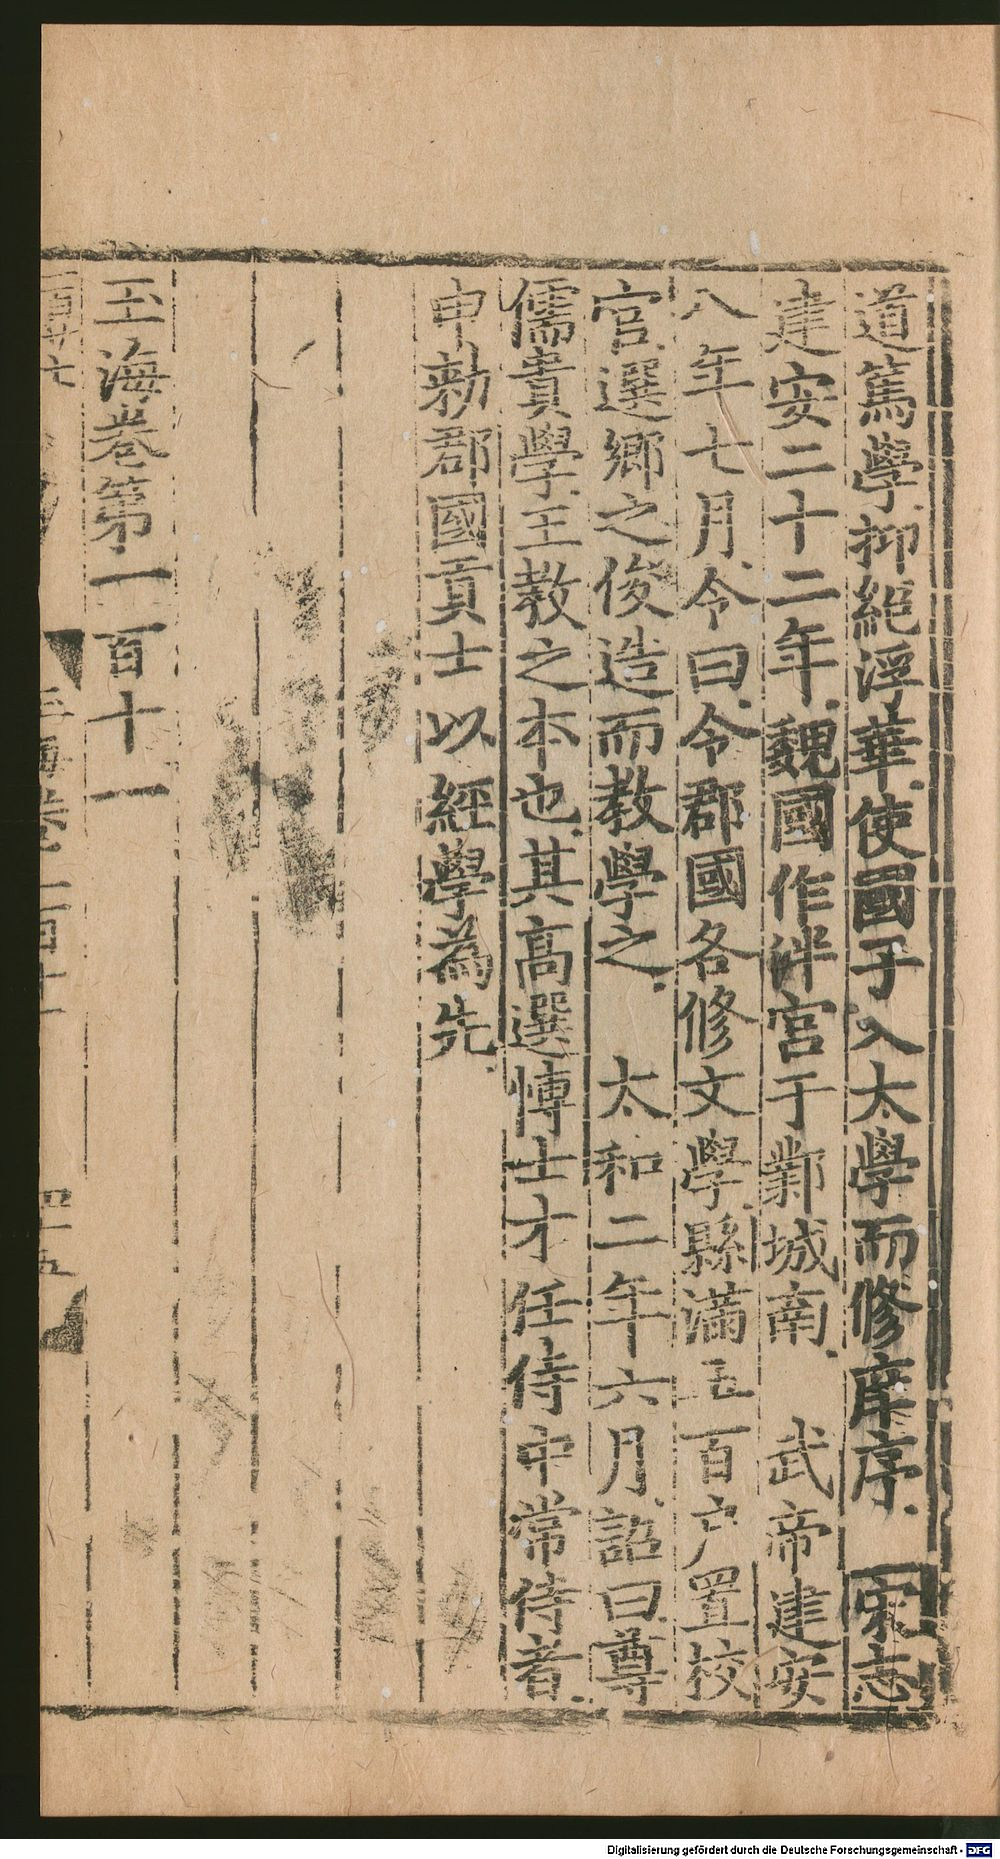 道篤學抑絕浮華使國子入太學而修庠序　宋志
建安二十二年魏國作泮宮于鄴城南　武帝建安
八年七月令曰令郡國各修文學縣滿五百户置校
官選鄉之俊造而教學之　太和二年六月詔曰尊
儒貴學王教之本也其高選愽士才任侍中常侍者
申勑郡國貢士以經學為先
玉海卷第一百十一
玉海卷一百十一　四十五
Digitalisierung gefördert durch die Deutsche Forschungsgemeinschaft - DFG